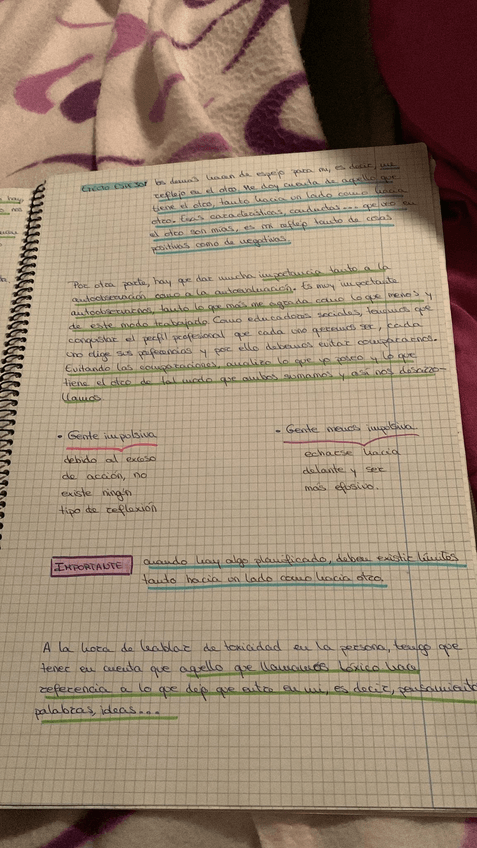 Efecto espejo: los demás hacen de espejo para mi, es decir, mi
reflejo es el otro. Me doy cuenta de aquello que
tiene el otro, tanto hacia un lado como hacia
otro. Esas características, conductas... que veo en
el otro son mías, es mi reflejo tanto de cosas
positivas como de negativas.
Por otra parte, hay que dar mucha importancia tanto a la
autoobservación como a la autoevaluación. Es muy importante
autoobservarnos, tanto lo que más me agrada como lo que menos y
de este modo trabajarlo. Como educadores sociales, tenemos que
conquistar el perfil profesional que cada uno queremos ser, cada
uno elige sus preferencias y por ello debemos evitar compararnos.
Evitando las comparaciones, analizo lo que yo poseo y lo que
tiene el otro de tal modo que ambos sumamos y así nos desarro-
llamos.
• Gente impulsiva
debido al exceso
de acción, no
existe ningún
tipo de reflexión
• Gente menos impulsiva
echarse hacia
delante y ser
más efusivo.
IMPORTANTE
cuando hay algo planificado, deben existir límites
tanto hacia un lado como hacia otro.
A la hora de hablar de toxicidad en la persona, tengo que
tener en cuenta que aquello que llamamos tóxico hace
referencia a lo que dejo que entre en mi, es decir, pensamientos
palabras, ideas...